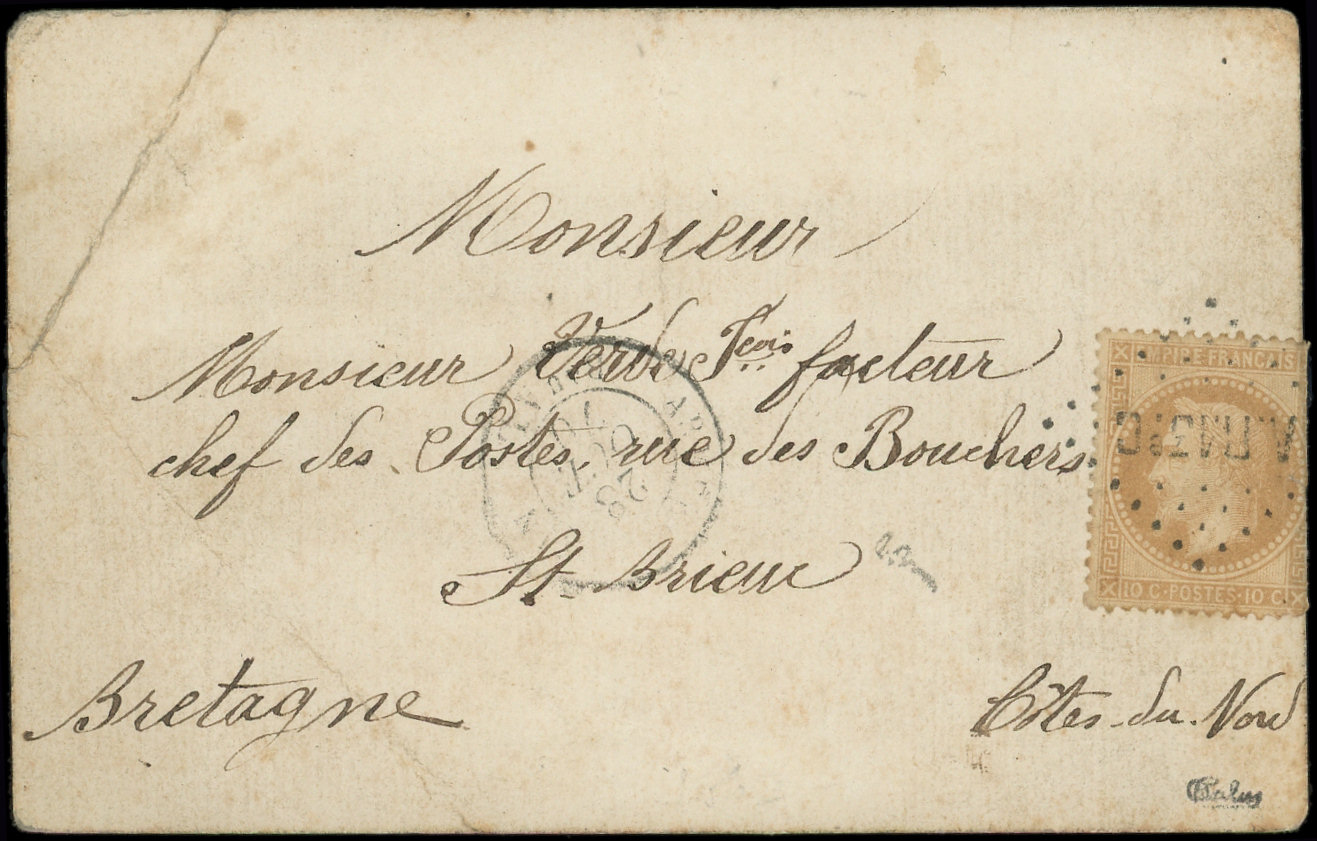 Monsieur
Monsieur Verde Fcois facteur
chef des Postes, rue des Bouchers
St Brieuc
Bretagne
Côtes-du-Nord
EMPIRE FRANCAIS
10 C · POSTES · 10 C
OCT
28
70